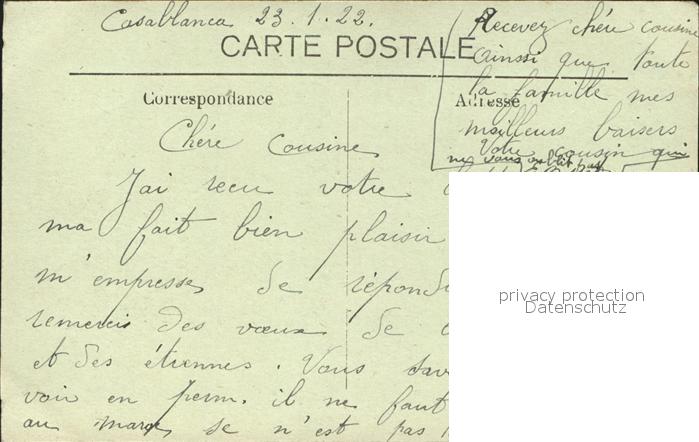 Casablanca 23.1.22.
CARTE POSTALE
Correspondance
Adresse
Recevez chére cousine
ainssi que toute
la famille mes
meilleurs baisers
Votre cousin qui
ne vous oublit pas
Chére cousine
J'ai recu votre
ma fait bien plaisir
m'empresse de répond
remercis des vœux de
et des étrennes. Vous sav
voir en perm. il ne faut
au maroc se n'est pas
privacy protection
Datenschutz